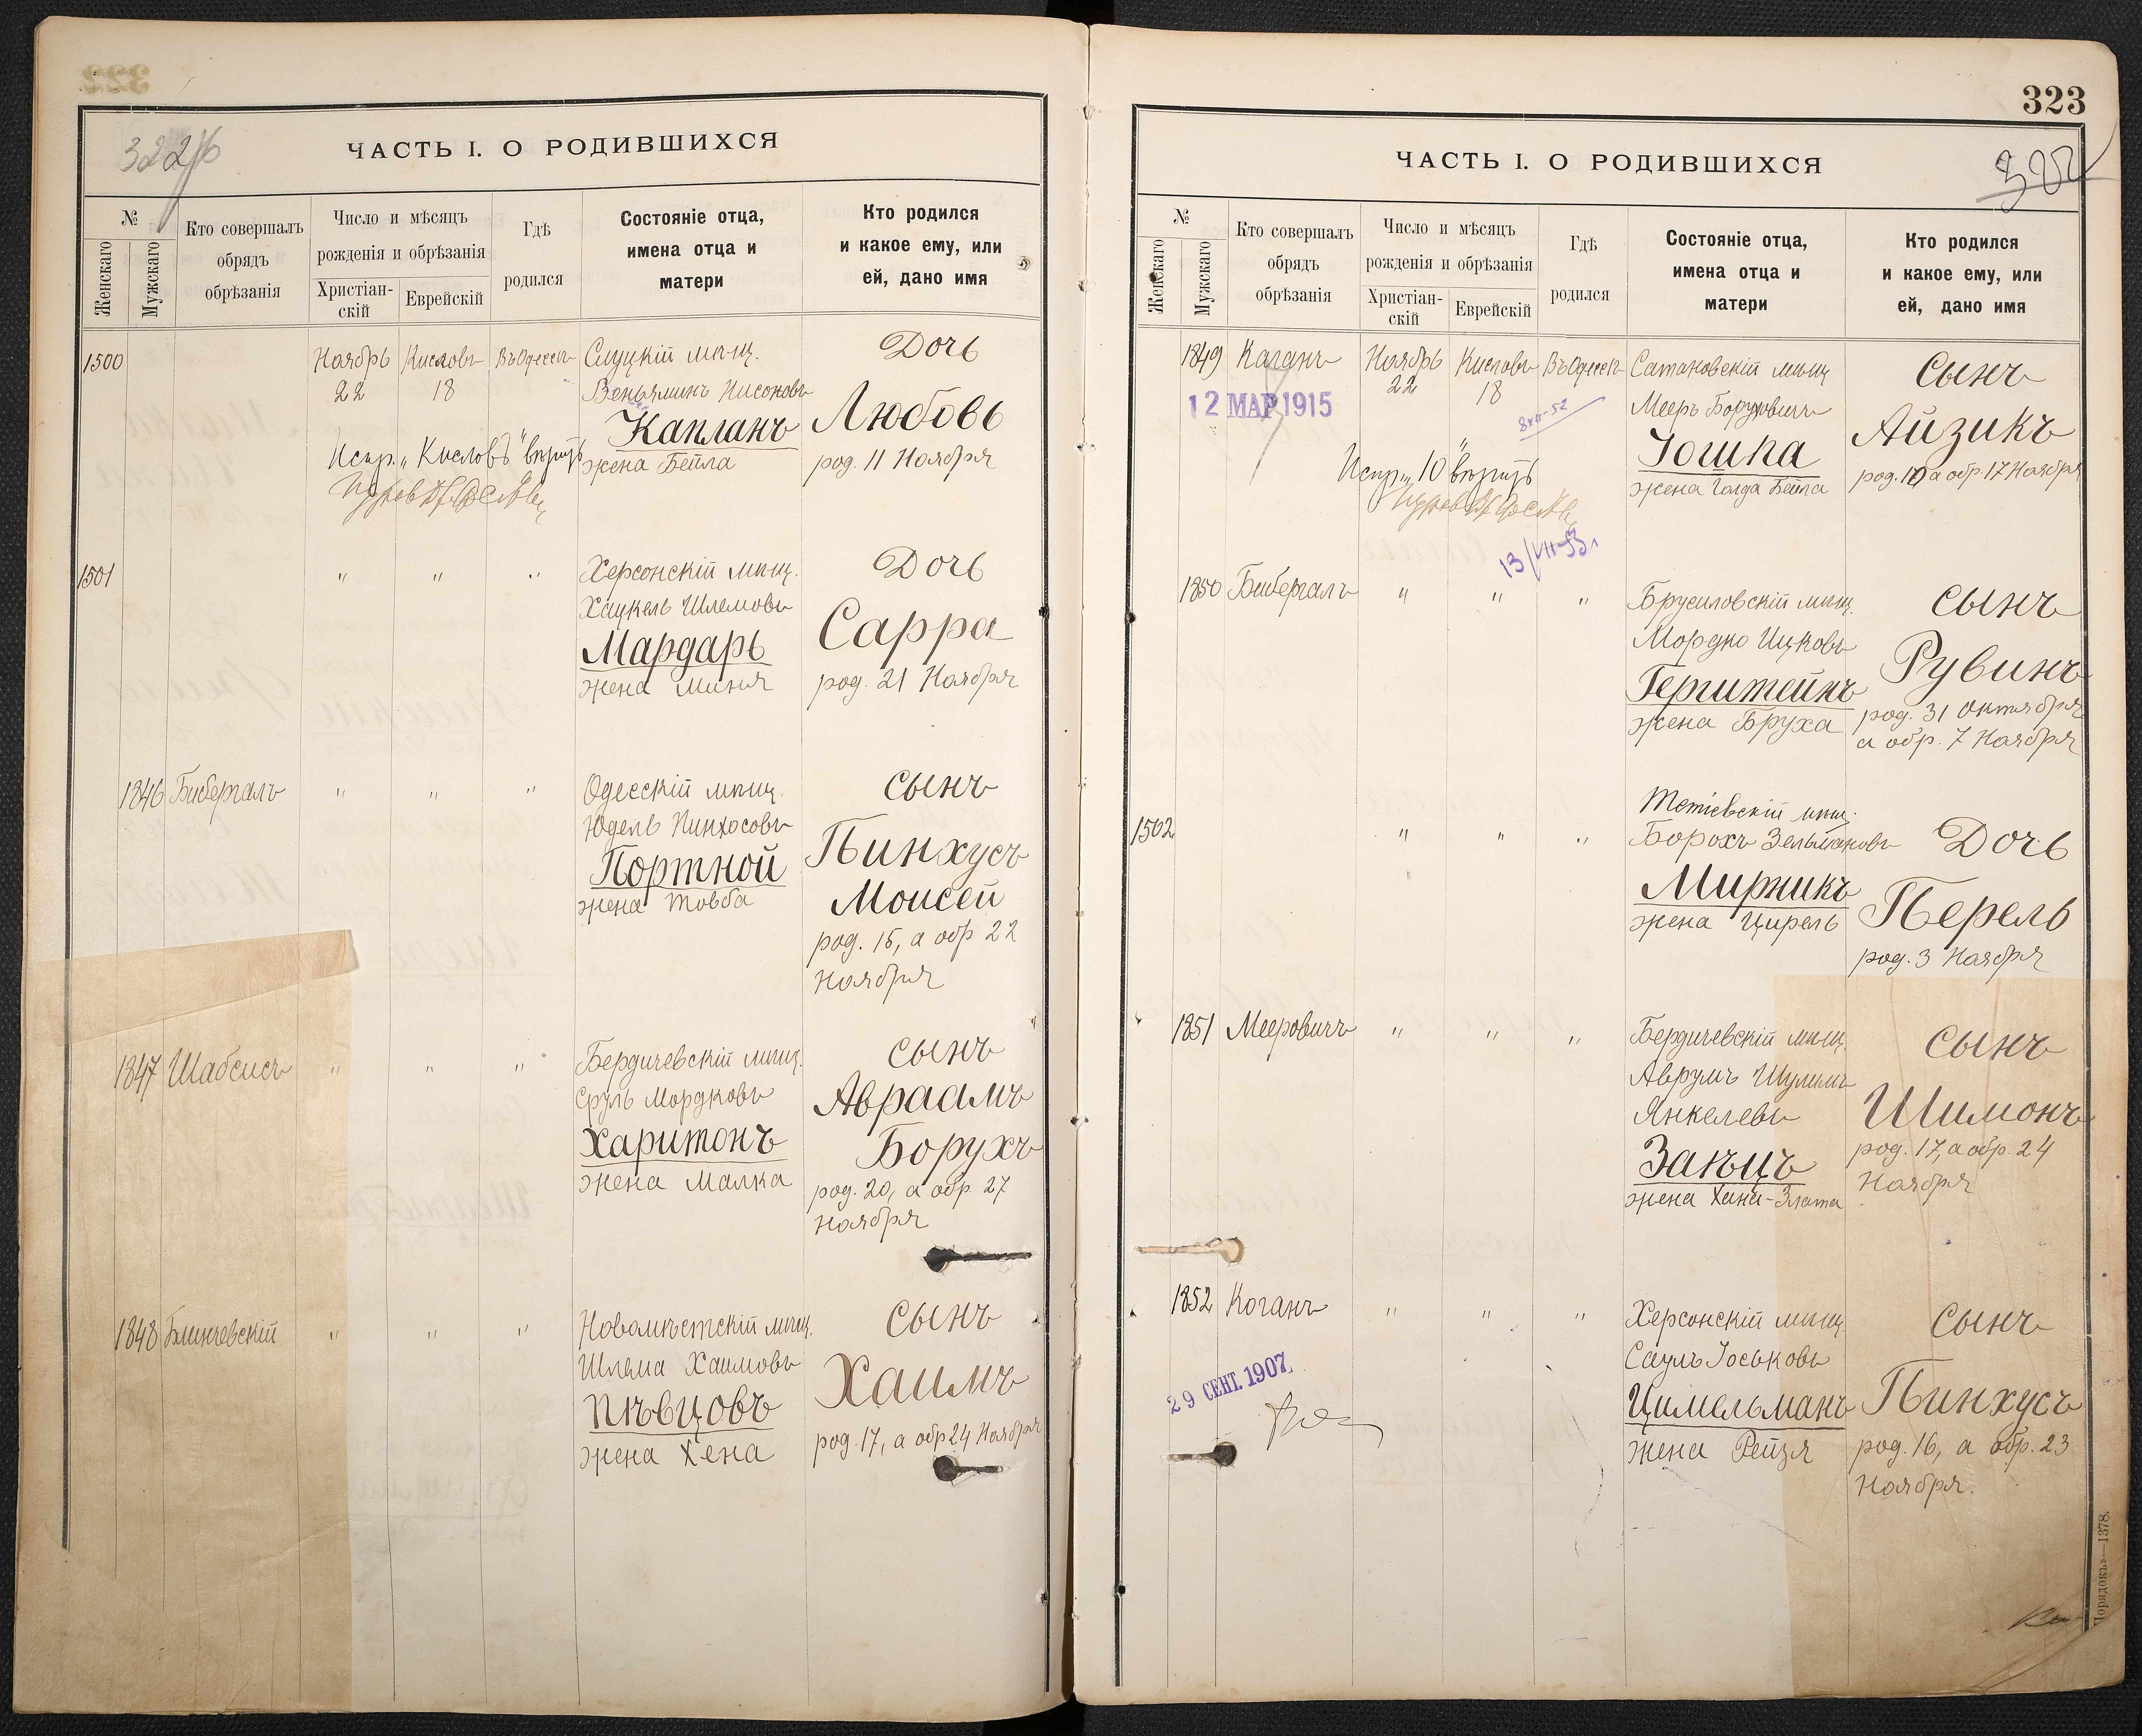 322
ЧАСТЬ I. О РОДИВШИХСЯ
№
Женскаго
Мужскаго
Кто совершалъ
обрядъ
обрѣзанія
Число и мѣсяцъ
рожденія и обрѣзанія
Христіан-
скій
Еврейскій
Гдѣ
родился
Состояніе отца,
имена отца и
матери
Кто родился
и какое ему, или
ей, дано имя
1500 Ноябрь Кисловъ Въ Одессѣ Слуцкій мѣщ. Дочь
22 18 Веньяминъ Нисоновъ
Капланъ Любовь
Испр. „Кисловъ" вѣрить жена Бейла род. 11 Ноября
1501 " " " Херсонскій мѣщ. Дочь
Хацкель Шлемовъ
Мардарь Сарра
жена Миня род. 21 Ноября
1846 Бибергалъ " " " Одесскій мѣщ. Сынъ
Юдель Пинхосовъ
Портной Пинхусъ
жена Товба Моисей
род. 15, а обр 22
Ноября
1847 Шабсисъ " " " Бердичевскій мѣщ. Сынъ
Сруль Мордковъ Авраамъ
Харитонъ Борухъ
жена Малка род. 20, а обр. 27
Ноября
1848 Блинчевскій " " " Новомѣстскій мѣщ. Сынъ
Шлема Хаимовъ
Пѣвцовъ Хаимъ
жена Хена род. 17, а обр 24 Ноября
323
302
ЧАСТЬ I. О РОДИВШИХСЯ
№
Женскаго
Мужскаго
Кто совершалъ
обрядъ
обрѣзанія
Число и мѣсяцъ
рожденія и обрѣзанія
Христіан-
скій
Еврейскій
Гдѣ
родился
Состояніе отца,
имена отца и
матери
Кто родился
и какое ему, или
ей, дано имя
1849 Каганъ Ноябрь Кисловъ Въ Одессѣ Сатановскій мѣщ Сынъ
22 18 Мееръ Боруховичъ
12 МАР 1915
8 XII-52
Юшпа Айзикъ
Испр. „10" вѣрить жена Голда Бейла род. 10, а обр. 17 Ноября
13/VII-53
1850 Бибергалъ " " " Брусиловскій мѣщ. Сынъ
Мордко Ицковъ
Герштейнъ Рувинъ
жена Бруха род. 31 Октября
а обр. 7 Ноября
Тетіевскій мѣщ.
1502 " " " Борохъ Зельмановъ Дочь
Мирникъ Перель
жена Цирель
род. 3 Ноября
1851 Мееровичъ " " " Бердичевскій мѣщ. Сынъ
Аврумъ Шулимъ
Янкелевъ Шимонъ
Заецъ род. 17, а обр. 24
жена Хана-Злата Ноября
1852 Коганъ " " " Херсонскій мѣщ Сынъ
Саулъ Іоськовъ
29 СЕНТ. 1907
Цимельманъ Пинхусъ
жена Рейзя род. 16, а обр. 23
Ноября.
Порядокъ—1378.